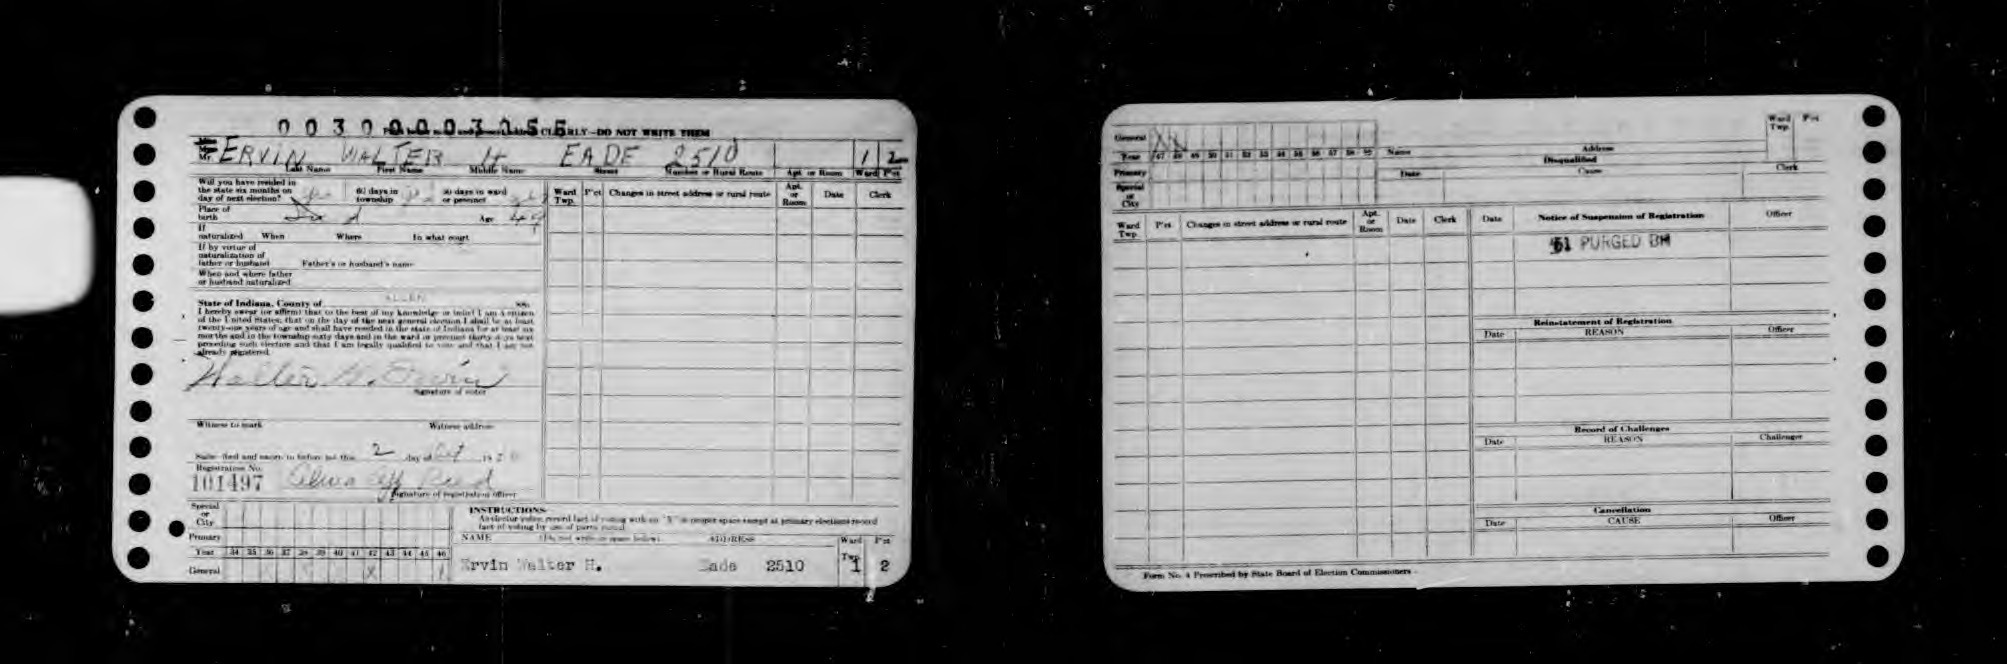 00300003056 CLEARLY—DO NOT WRITE THEM
Mr. ERVIN WALTER H EADE 2510 1 2
Last Name First Name Middle Name Street Number or Rural Route Apt. or Room Ward P'ct
Will you have resided in the state six months on day of next election? 60 days in township 30 days in ward or precinct
Place of birth Ind Age
If naturalized When Where In what court
If by virtue of naturalization of father or husband Father's or husband's name
When and where father or husband naturalized
Ward Twp. P'ct Changes in street address or rural route Apt. or Room Date Clerk
State of Indiana, County of ALLEN ss:
I hereby swear (or affirm) that to the best of my knowledge or belief I am a citizen
of the United States; that on the day of the next general election I shall be at least
twenty-one years of age and shall have resided in the state of Indiana for at least six
months and in the township sixty days and in the ward or precinct thirty days next
preceding such election and that I am legally qualified to vote and that I am not
already registered.
Walter H. Ervin
Signature of voter
Witness to mark Witness address
Subscribed and sworn to before me this 2 day of
Registration No.
101497
Signature of registration officer
Special or City
Primary
Year 34 35 36 37 38 39 40 41 42 43 44 45 46
General X
INSTRUCTIONS
NAME (Do not write in space below) ADDRESS Ward Twp. P'ct
Ervin Walter H. Eade 2510 1 2
General
Year 47 48 49 50 51 52 53 54 55 56 57 58 59
Primary
Special or City
Name Address Ward Twp. P'ct
Disqualified
Date Cause Clerk
Ward Twp. P'ct Changes in street address or rural route Apt. or Room Date Clerk
Date Notice of Suspension of Registration Officer
51 PURGED BH
Reinstatement of Registration
Date REASON Officer
Record of Challenges
Date REASON Challenger
Cancellation
Date CAUSE Officer
Form No. 4 Prescribed by State Board of Election Commissioners